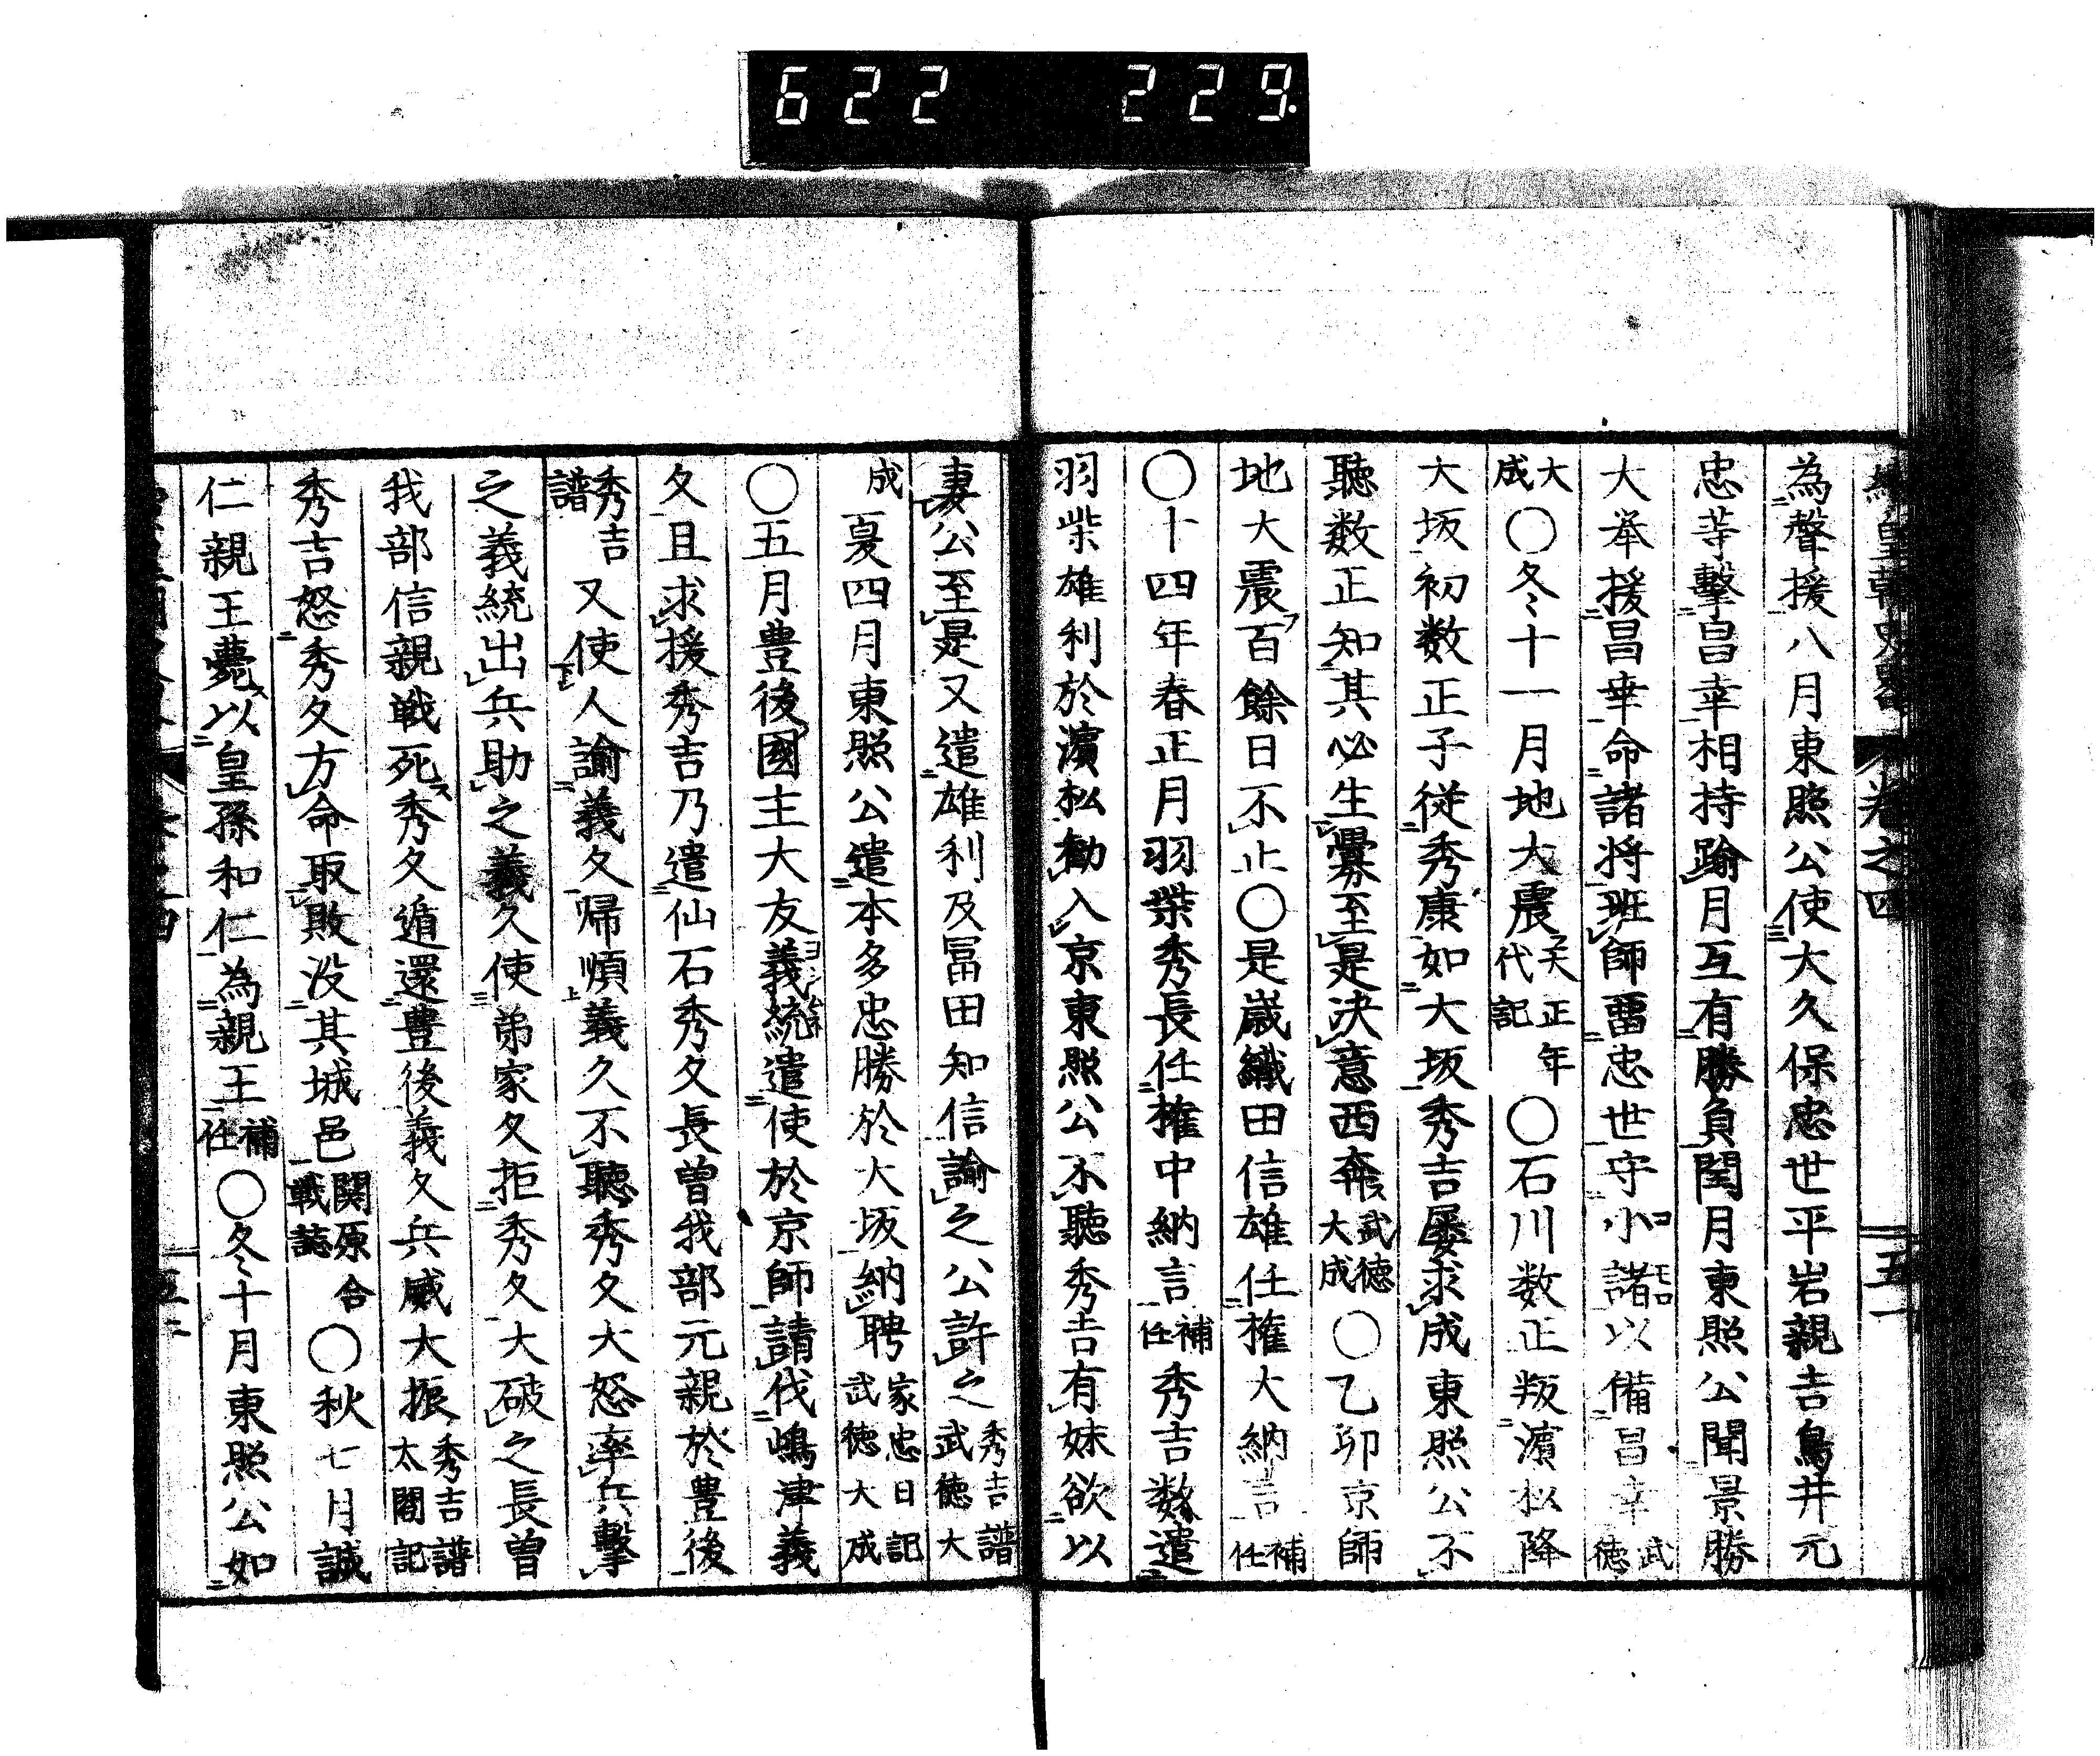 622 229.
續皇朝史略 卷之四 五一
為聲援八月東照公使大久保忠世平岩親吉鳥井元
忠等擊昌幸相持踰月互有勝負閏月東照公聞景勝
大举援昌幸命諸将班師畱忠世守小諸以備昌幸武德
大成〇冬十一月地大震天正年代記〇石川数正叛濵松降
大坂初数正子従秀康如大坂秀吉屡求成東照公不
聽数正知其必生釁至是决意西奔武德大成〇乙卯京師
地大震百餘日不止〇是歳織田信雄任権大納言補任
〇十四年春正月羽柴秀長任権中納言補任秀吉数遣
羽柴雄利於濵松勧入京東照公不聽秀吉有妹欲以
妻公至是又遣雄利及冨田知信諭之公許之秀吉譜武德大
成夏四月東照公遣本多忠勝於大坂納聘家忠日記武德大成
〇五月豊後國主大友義統遣使於京師請伐嶋津義
久且求援秀吉乃遣仙石秀久長曽我部元親於豊後
秀吉譜又使人諭義久帰順義久不聽秀久大怒率兵擊
之義統出兵助之義久使弟家久拒秀久大破之長曽
我部信親戦死秀久遁還豊後義久兵威大振秀吉譜太閤記
秀吉怒秀久方命取敗没其城邑関原合戦誌〇秋七月誠
仁親王薨以皇孫和仁為親王補任〇冬十月東照公如